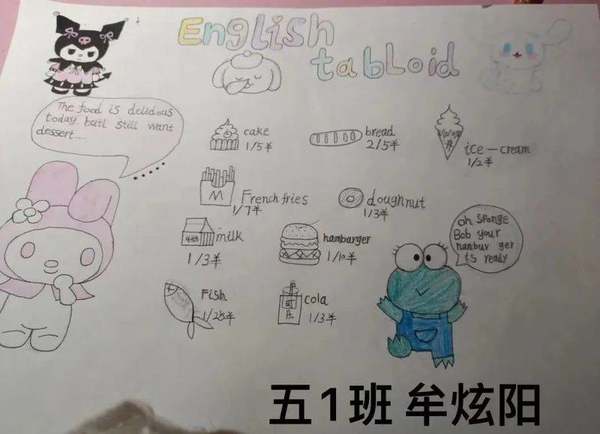 English
tabloid
The food is delidous
today, but I still want
dessert....
cake
1/5¥
bread
2/5¥
ice-cream
1/2¥
French fries
1/7¥
doughnut
1/3¥
milk
1/3¥
hambarger
1/10¥
oh sponge
Bob your
hambur ger
is ready
Fish
cola
1/3¥
五1班 牟炫阳